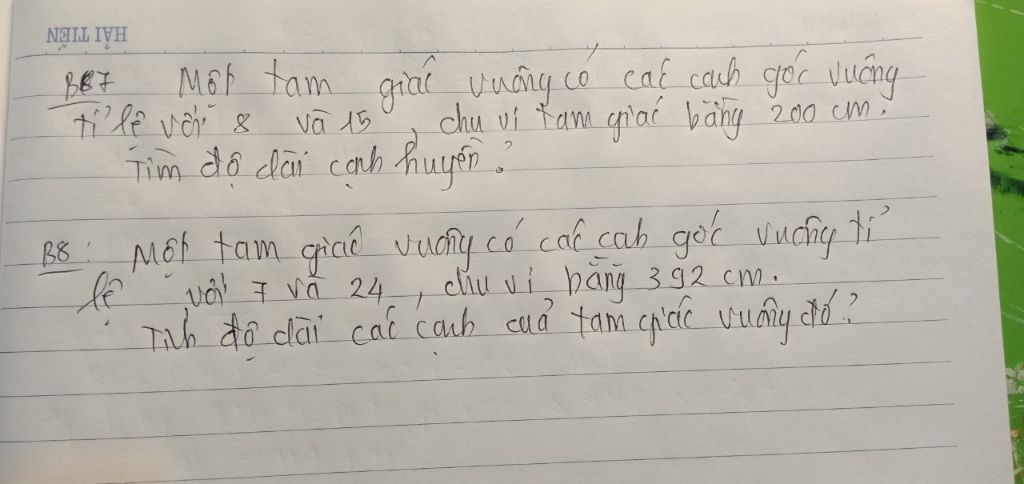 HẢI TIẾN
B7 Một tam giác vuông có các cạnh góc vuông
tỉ lệ với 8 và 15, chu vi tam giác bằng 200 cm.
Tìm độ dài cạnh huyền?
B8: Một tam giác vuông có các cạnh góc vuông tỉ
lệ với 7 và 24, chu vi bằng 392 cm.
Tính độ dài các cạnh của tam giác vuông đó?